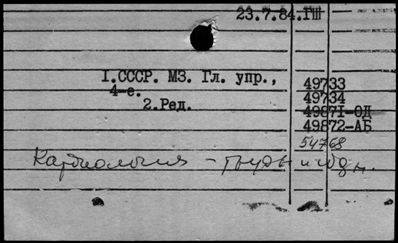 23.7.84.ГШ
I.СССР. МЗ. Гл. упр.,
4-е.
2.Ред.
49733
49734
49871-ОД
49872-АБ
54768
Кардиология -